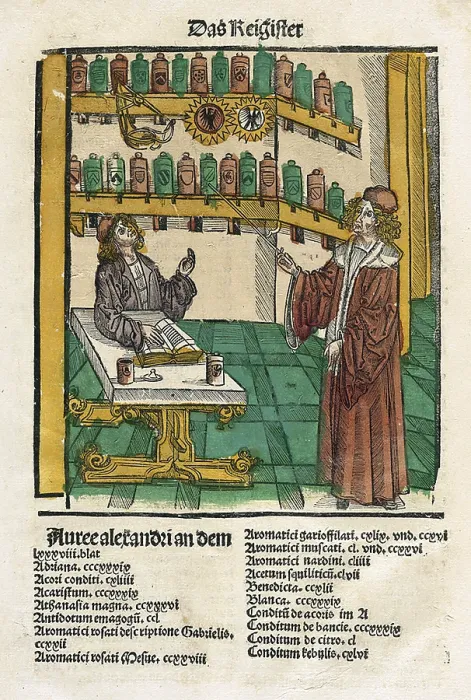 Das Register
Auree alexandri an dem
lxxxviii.blat
Adriana. cccxxxix
Acori conditi. cxliiii
Acaristum. cccxxxix
Athanasia magna. ccxxxvi
Antidotum emagogū. ccl
Aromatici rosati descriptione Gabrielis.
ccxxii
Aromatici rosati Mesue. ccxxviii
Aromatici gariofilati. cxlix. vnd. ccxvi
Aromatici muscati. cli. vnd. ccxxvi
Aromatici nardini. cliiii
Acetum squiliticū.clvii
Benedicta. ccxlii
Blanca. cccxxxix
Conditū de acoris im A
Conditum de bancie. cccxxxix
Conditum de citro. cl
Conditum kebulis. cxlvi